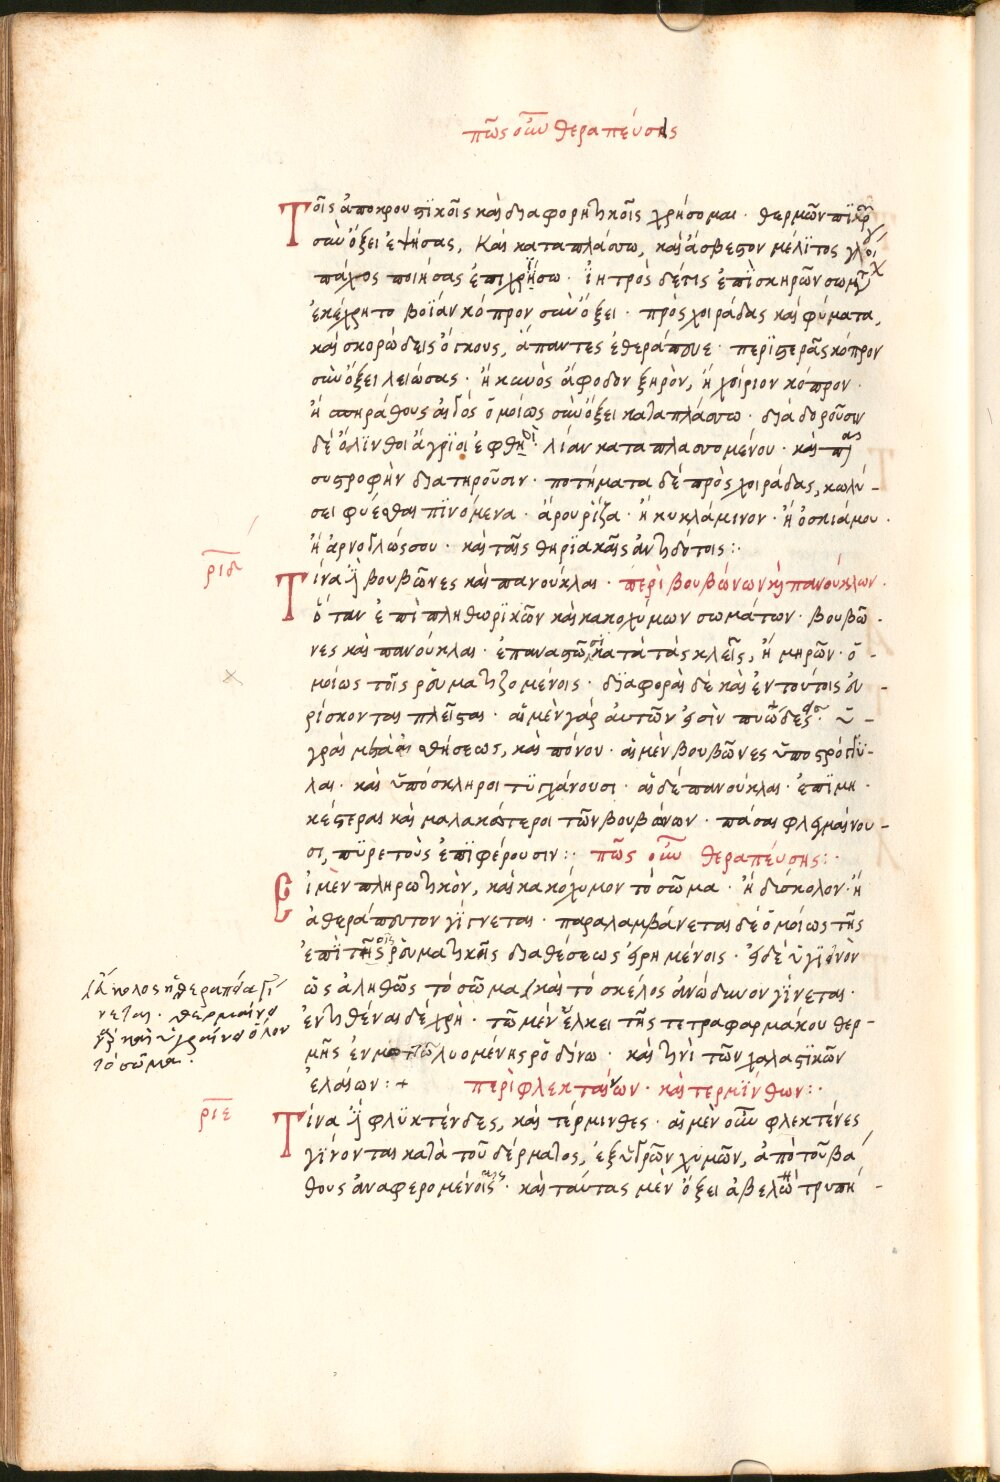 πῶς οὖν θεραπεύσης
Τοῖς ἀποκρουστικοῖς καὶ διαφορητικοῖς χρήσομαι · θερμῶν πικρ
σὺν ὄξει ἑψήσας, καὶ καταπλάσσω, καὶ ἄσβεστον μέλιτος γλοι
πάχος ποιήσας ἐπιχρίσω · ἰητρὸς δέ τις ἐπὶ σκηρῶν σωμ
ἐκέχρητο βοΐαν κόπρον σὺν ὄξει · πρὸς χοιράδας καὶ φύματα,
καὶ σκορώδεις ὄγκους, ἅπαντες ἐθεράπευε · περϊστερᾶς κόπρον
σὺν ὄξει λειώσας · ἢ κυνὸς ἄφοδον ξηρὸν, ἢ χοίριον κόπρον ·
ἢ σπηράθους αἰγὸς ὁμοίως σὺν ὄξει καταπλάσσω · διαφοροῦσιν
δὲ ὄλϊνθοι ἄγρϊοι ἑφθοὶ · λίαν καταπλασσομένου · καὶ
συστροφὴν διατηροῦσιν · ποτήματα δὲ πρὸς χοιράδας, κωλύ-
σει φύεσθαι πϊνόμενα · ἄρου ρίζα · ἢ κυκλάμινον · ἢ ὀσκιάμου ·
ἢ ἀρνογλώσσου · καὶ ταῖς θηρϊακαῖς ἀντιδότοις :·
ριδ
Τίνα ἢ βουβῶνες καὶ πανούκλαι · περὶ βουβώνων καὶ πανούκλων ·
ὅταν ἐπὶ πληθωρϊκῶν καὶ κακοχύμων σωμάτων · βουβῶ-
νες καὶ πανούκλαι · ἐπαναστῶσι κατὰ τὰς κλεῖς, ἢ μηρῶν · ὁ-
μοίως τοῖς ρευματιζομένοις · διαφορὰι δὲ καὶ ἐν τούτοις εὑ-
ρίσκονται πλεῖσται · αἱ μὲν γὰρ αὐτῶν εἰσὶν πυώδες · ὑ-
γραὶ μετὰ αἰσθήσεως, καὶ πόνου · αἱ μὲν βουβῶνες ὑποστρόγγϋ-
λαι · καὶ ὑπόσκληροι τϋγχάνουσι · αἱ δὲ πανούκλαι · ἐπϊμη-
κέστεραι καὶ μαλακώτεροι τῶν βουβώνων · πάσαι φλεγμαίνου-
σι, πϋρετοὺς ἐπϊφέρουσιν :· πῶς οὖν θεραπεύσης :·
Εἰ μὲν πληρωτικὸν, καὶ κακόχυμον τὸ σῶμα · ἢ δύσκολον · ἢ
ἀθεράπευτον γίγνεται · παραλαμβάνεται δὲ ὁμοίως τῆς
ἐπὶ τῆς ρευματικῆς διαθέσεως εἰρημένοις · εἰ δὲ ὑγϊεινὸν
ὡς ἀληθῶς τὸ σῶμα καὶ τὸ σκέλος ἀνώδυνον γίνεται ·
ἐντιθέναι δὲ χρὴ · τῶ μὲν ἕλκει τῆς τετραφαρμάκου θερ-
μῆς ἐν λυομένης ροδίνω · καὶ τινὶ τῶν χαλαστϊκῶν
ἐλαίων : + περὶ φλεκταινων · καὶ τερμίνθων :·
νεται · θερμαίνει
καὶ ὑγραίνει ὅλον
τὸ σῶμα ·
ριε
Τίνα ἢ φλϋκτένδες, καὶ τέρμινθες · αἱ μὲν οὖν φλεκτένες
γίνονται κατὰ τοῦ δέρματος, ἐξ ὑδρῶν χυμῶν, ἀπὸ τοῦ βά
θους ἀναφερομένοις · καὶ ταύτας μὲν ὀξει ἀ βελω τρυπή-